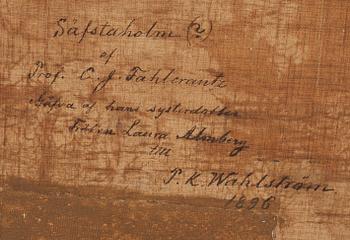 Säfstaholm (?)
af
Prof. C. J. Fahlcrantz
Gåfva af hans systerdotter
Fröken Laura Almberg
till
P. K. Wahlström
1896